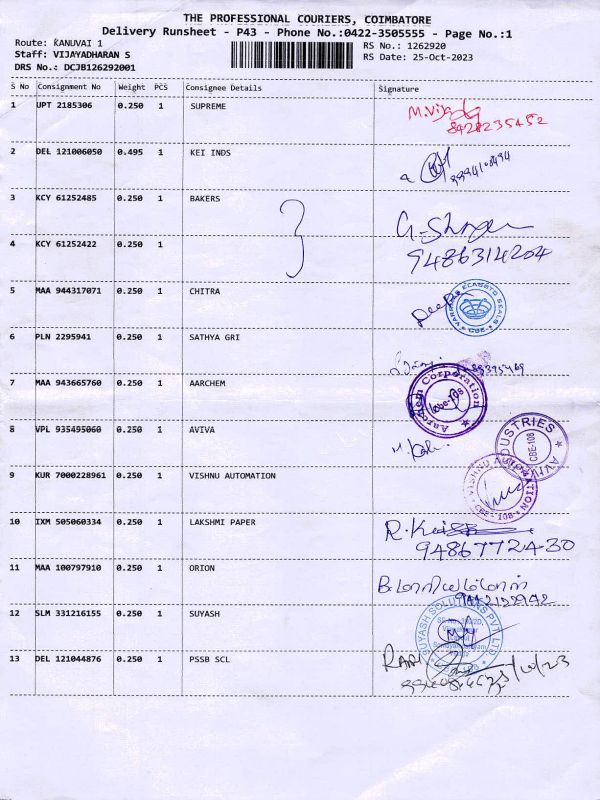 THE PROFESSIONAL COURIERS, COIMBATORE
Delivery Runsheet - P43 - Phone No.:0422-3505555 - Page No.:1
Route: KANUVAI 1
RS No.: 1262920
Staff: VIJAYADHARAN S
RS Date: 25-Oct-2023
DRS No.: DCJB126292001
S No Consignment No Weight PCS Consignee Details Signature
1 UPT 2185306 0.250 1 SUPREME
2 DEL 121006050 0.495 1 KEI INDS
3 KCY 61252485 0.250 1 BAKERS
4 KCY 61252422 0.250 1
9486314204
5 MAA 944317071 0.250 1 CHITRA
6 PLN 2295941 0.250 1 SATHYA GRI
7 MAA 943665760 0.250 1 AARCHEM
8 VPL 935495060 0.250 1 AVIVA
9 KUR 7000228961 0.250 1 VISHNU AUTOMATION
10 IXM 505060334 0.250 1 LAKSHMI PAPER
11 MAA 100797910 0.250 1 ORION
12 SLM 331216155 0.250 1 SUYASH
SUYASH SOLUTIONS PVT LTD
13 DEL 121044876 0.250 1 PSSB SCL